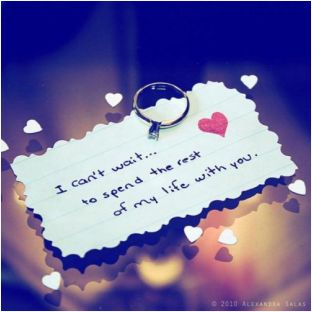 I can't wait...
to spend the rest
of my life with you.
© 2010 ALEXANDRA SALAS